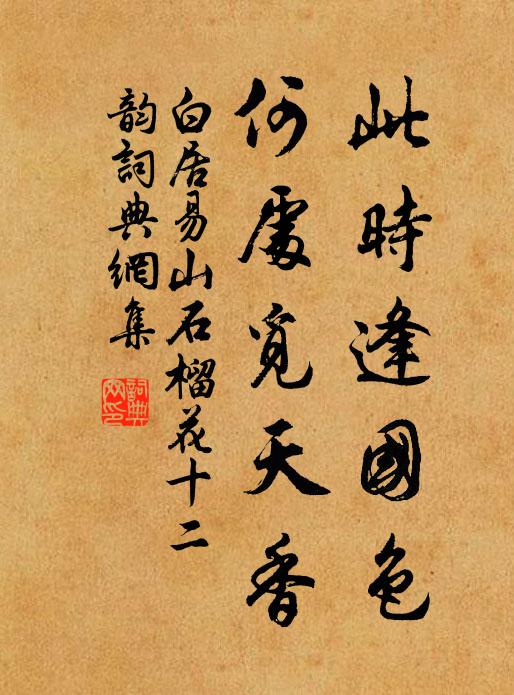 此時逢國色
何處覓天香
白居易山石榴花十二
韵詞典網集
詞典網印